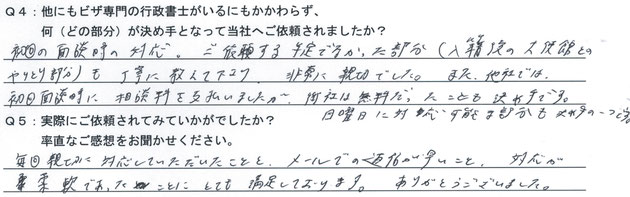 Q4：他にもビザ専門の行政書士がいるにもかかわらず、
何（どの部分）が決め手となって当社へご依頼されましたか？
初回の面談時の対応。ご依頼する予定でなかった部分（入籍後の大使館との
やりとり部分）も丁寧に教えて下さり、非常に親切でした。また、他社では、
初回面談時に相談料を支払いましたが、御社は無料だったことも決め手です。
日曜日に対応可能な部分も決め手の一つです。
Q5：実際にご依頼されてみていかがでしたか？
率直なご感想をお聞かせください。
毎回親切に対応していただいたことと、メールでの返信が早いこと、対応が
柔軟であったことにとても満足しております。ありがとうございました。